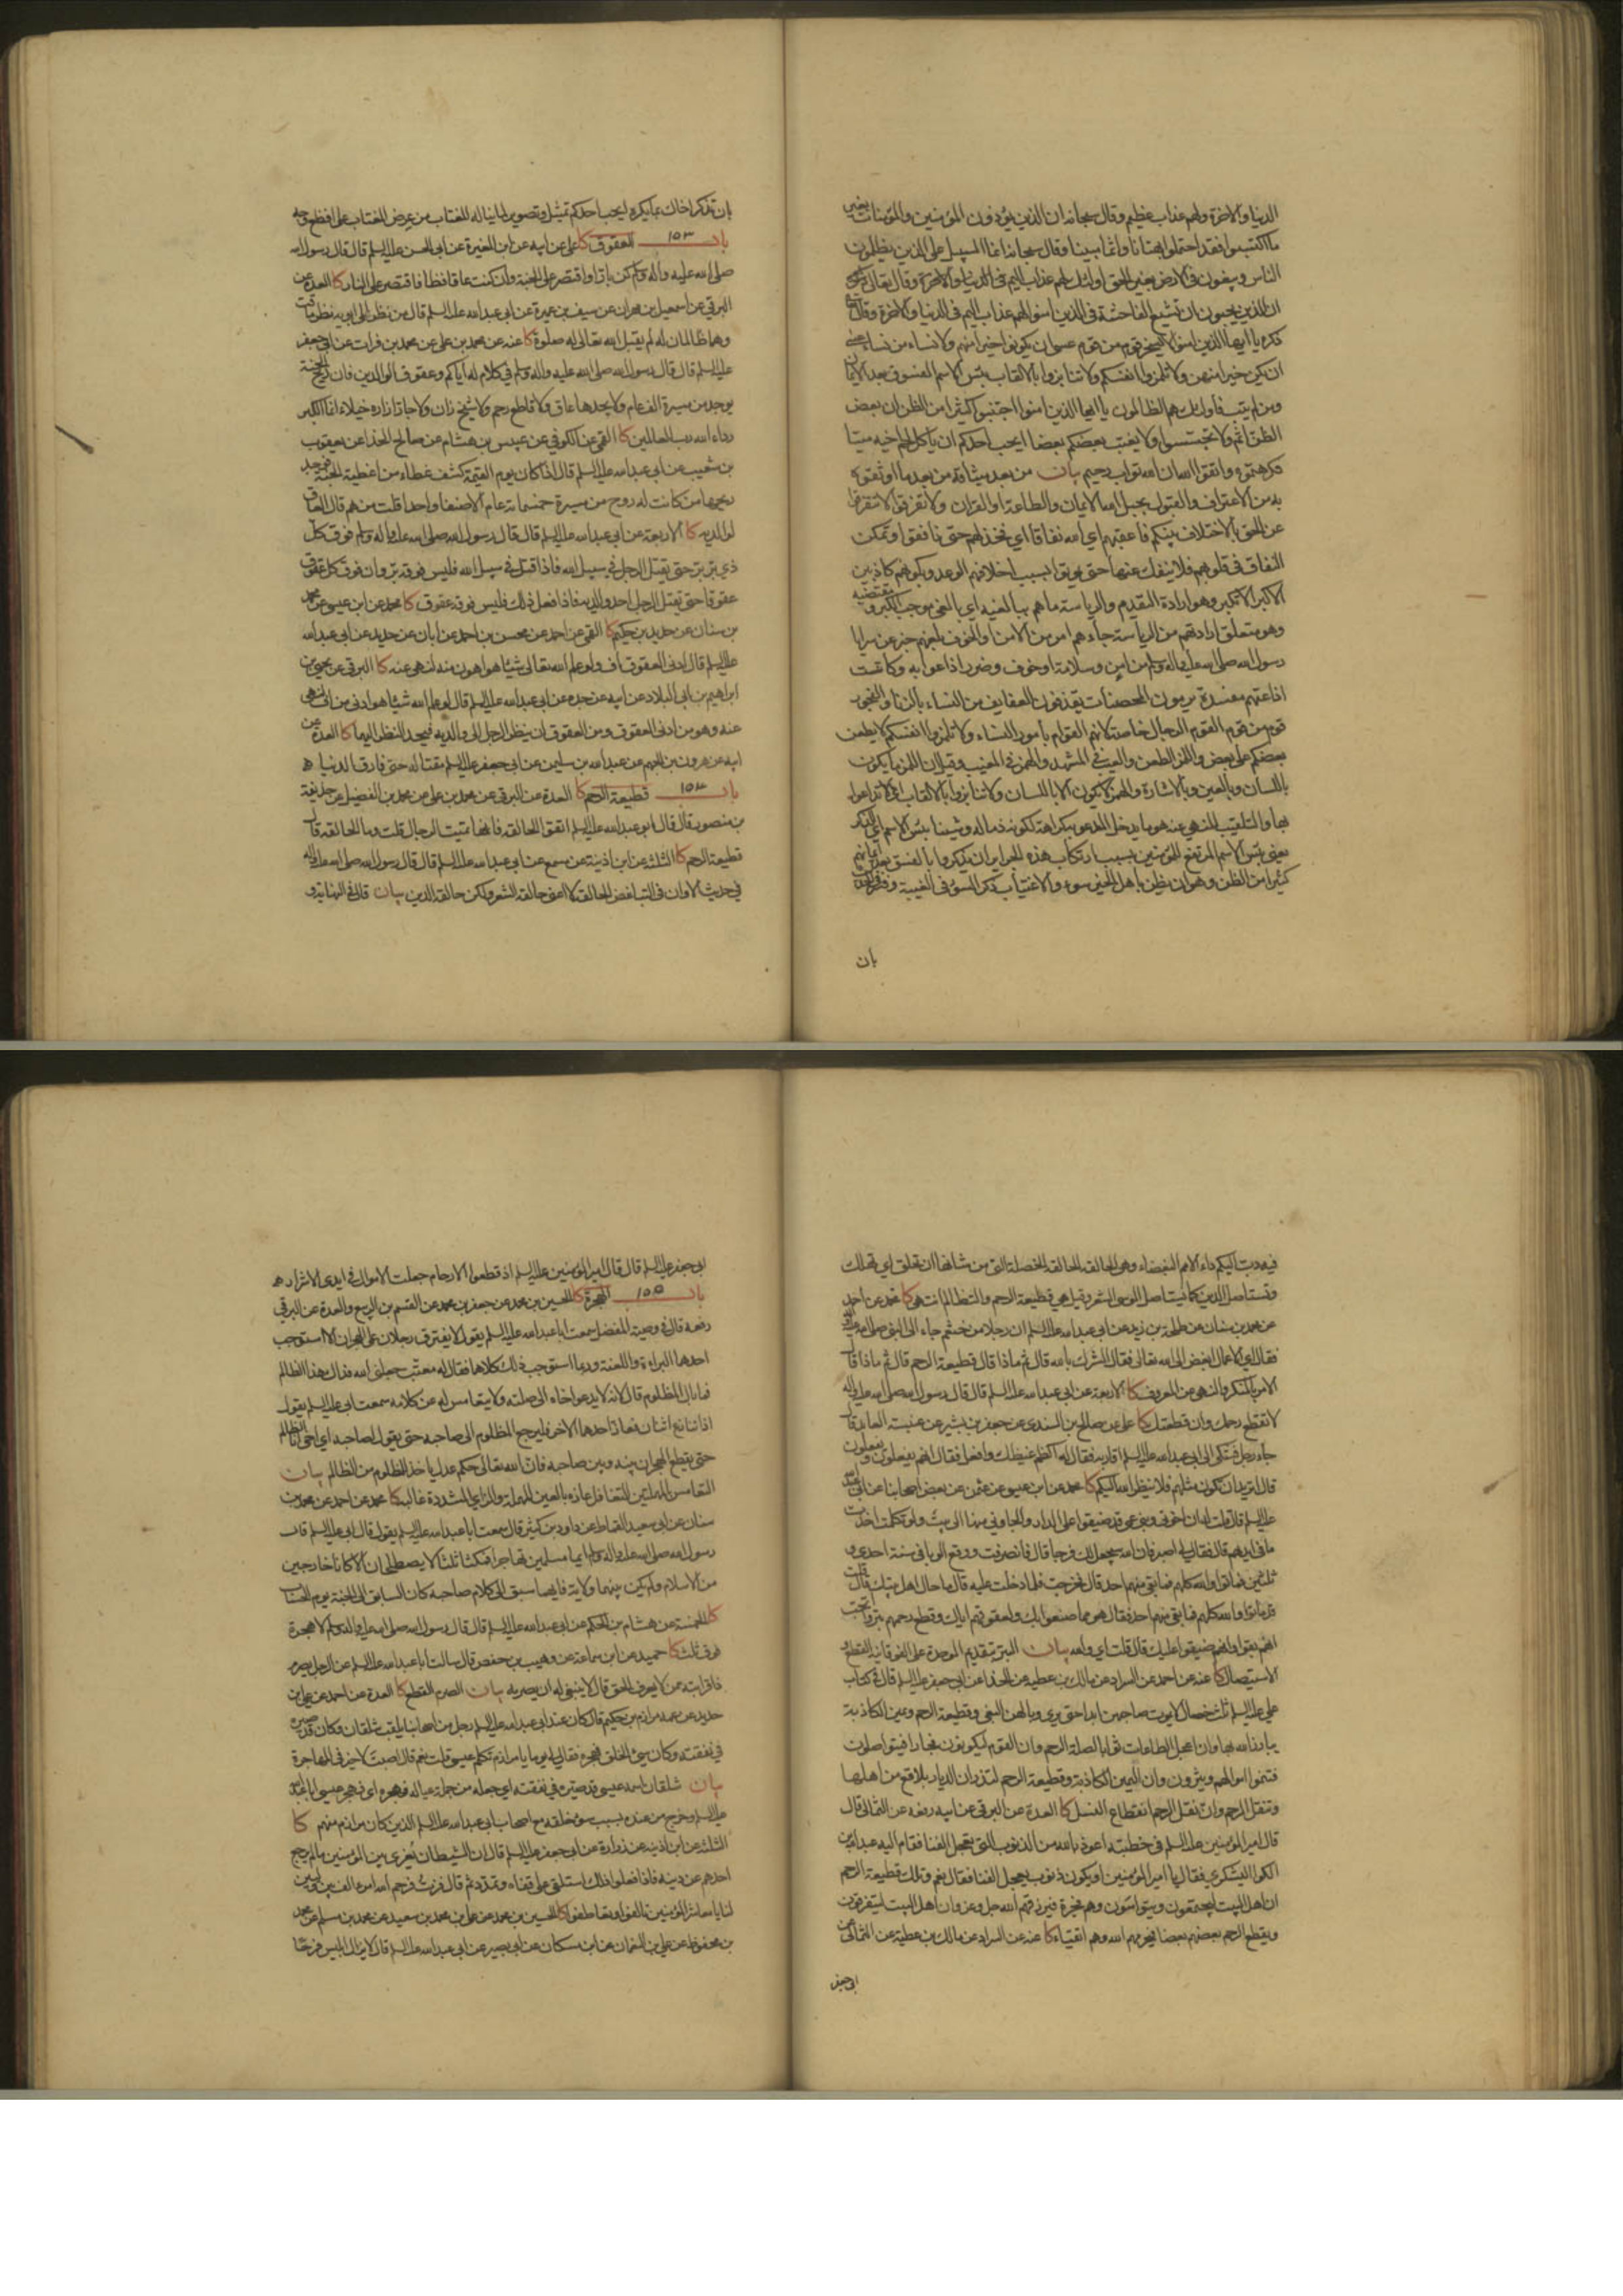 الدنيا والاخرة ولهم عذاب عظيم وقال سبحانه ان الذين يؤذون المؤمنين والمؤمنات بغير
ما اكتسبوا فقد احتملوا بهتانا واثما مبينا وقال سبحانه انما السبيل على الذين يظلمون
الناس ويبغون في الارض بغير الحق اولئك لهم عذاب اليم في الدنيا والاخرة وقال تعالى
ان الذين يحبون ان تشيع الفاحشة في الذين امنوا لهم عذاب اليم في الدنيا والاخرة وقال
ذكره يا ايها الذين امنوا لا يسخر قوم من قوم عسى ان يكونوا خيرا منهم ولا نساء من نساء عسى
ان يكن خيرا منهن ولا تلمزوا انفسكم ولا تنابزوا بالالقاب بئس الاسم الفسوق بعد الايمان
ومن لم يتب فاولئك هم الظالمون يا ايها الذين امنوا اجتنبوا كثيرا من الظن ان بعض
الظن اثم ولا تجسسوا ولا يغتب بعضكم بعضا ايحب احدكم ان ياكل لحم اخيه ميتا
فكرهتموه واتقوا الله ان الله تواب رحيم بيان من بعد ميثاقه من بعد ما اوثقوه
به من الاعتراف والقبول بحبل الله الايمان والطاعة او القران ولا تفرقوا لا تتفرقوا
عن الحق بالاختلاف بينكم فاعقبهم اي الله نفاقا اي نخذلهم حتى نافقوا وتمكن
النفاق في قلوبهم فلا ينفك عنها حتى يموتوا بسبب اخلافهم الوعد وبكونهم كاذبين
الاكبر الا تكبر وهو ارادة التقدم والرياسة ما هم ببالغيه اي بالغي موجب الكبر ومقتضيه
وهو متعلق ارادتهم من الرياسة جاءهم امر من الامن او الخوف بلغهم خبر عن سرايا
رسول الله صلى الله عليه واله وسلم من امن وسلامة او خوف وضرر اذاعوا به وكانت
اذاعتهم مفسدة يرمون المحصنات يقذفون العفايف من النساء بالزنا والفجور
قوم من قوم القوم الرجال خاصة لانهم القوام بأمور النساء ولا تلمزوا انفسكم لا يطعن
بعضكم على بعض واللمز الطعن والعيب في المشهد والهمز في المغيب وقيل ان اللمز ما يكون
باللسان وبالعين وبالاشارة والهمز لا يكون الا باللسان ولا تنابزوا بالالقاب اي لا تداعوا
بها والتلقيب المنهي عنه هو ما يدخل المدعو به كراهة لكونه ذما له وشينا بئس الاسم اي الذكر
يعني بئس الاسم المرتفع للمؤمنين بسبب ارتكاب هذه الجراير ان يذكروا بالفسق بعد ايمانهم
كثيرا من الظن وهو ان يظن باهل الخير سوء والاغتياب ذكر السوء في الغيبة وفي
بان
بان تذكر اخاك بما يكره ايحب احدكم تمثيل وتصوير لما يناله المغتاب من عرض المغتاب على افظع وجه
باب ١٥٣ العقوق كا علي عن ابيه عن ابن المغيرة عن ابي الحسن عليه السلم قال قال رسول الله
صلى الله عليه واله وسلم كن بارا واقتصر على الجنة وان كنت عاقا فظا فاقتصر على النار كا العدة عن
البرقي عن اسمعيل بن مهران عن سيف بن عميرة عن ابي عبد الله عليه السلم قال من نظر الى ابويه نظر ماقت
وهما ظالمان له لم يقبل الله تعالى له صلوة كا عنه عن محمد بن علي عن محمد بن فرات عن ابي جعفر
عليه السلم قال قال رسول الله صلى الله عليه واله وسلم في كلام له اياكم وعقوق الوالدين فان ريح الجنة
يوجد من مسيرة الف عام ولا يجدها عاق ولا قاطع رحم ولا شيخ زان ولا جار ازاره خيلاء انما الكبر
رداء الله رب العالمين كا القمي عن الكوفي عن عبيس بن هشام عن صالح الحذا عن يعقوب
بن شعيب عن ابي عبد الله عليه السلم قال اذا كان يوم القيمة كشف غطاء من اغطية الجنة فوجد
ريحها من كانت له روح من مسيرة خمسمائة عام الا صنفا واحدا قلت من هم قال العاق
لوالديه كا الاربعة عن ابي عبد الله عليه السلم قال قال رسول الله صلى الله عليه واله وسلم فوق كل
ذي بر بر حتى يقتل الرجل في سبيل الله فاذا قتل في سبيل الله فليس فوقه بر وان فوق كل عقوق
عقوقا حتى يقتل الرجل احد والديه فاذا فعل ذلك فليس فوقه عقوق كا محمد عن ابن عيسى عن محمد
بن سنان عن حديد بن حكيم كا القمي عن احمد عن محسن بن احمد عن ابان عن حديد عن ابي عبد الله
عليه السلم قال ادنى العقوق اف ولو علم الله تعالى شيئا هو اهون منه لنهى عنه كا البرقي عن يحيى بن
ابراهيم بن ابي البلاد عن ابيه عن جده عن ابي عبد الله عليه السلم قال لو علم الله شيئا هو ادنى من اف لنهى
عنه وهو من ادنى العقوق ومن العقوق ان ينظر الرجل الى والديه فيحد النظر اليهما كا العدة عن
ابيه عن هرون بن الجهم عن عبد الله بن سليمن عن ابي جعفر عليه السلم مقتا له حتى فارق الدنيا ه
باب ١٥٤ قطيعة الرحم كا العدة عن البرقي عن محمد بن علي عن محمد بن الفضيل عن حذيفة
بن منصور قال قال ابو عبد الله عليه السلم اتقوا الحالقة فانها تميت الرجال قلت وما الحالقة قال
قطيعة الرحم كا الثلثة عن ابن اذينة عن مسمع عن ابي عبد الله عليه السلم قال قال رسول الله صلى الله عليه واله
في حديث الا وان في التباغض الحالقة لا اعني حالقة الشعر ولكن حالقة الدين بيان قال في النهاية و
فيه دب اليكم داء الامم البغضاء وهي الحالقة الحالقة الخصلة التي من شانها ان تحلق اي تهلك
وتستاصل الدين كما يستاصل الموسى الشعر وقيل هي قطيعة الرحم والتظالم انتهى كا محمد عن احمد
عن محمد بن سنان عن طلحة بن زيد عن ابي عبد الله عليه السلم ان رجلا من خثعم جاء الى النبي صلى الله عليه واله
فقال اي الاعمال ابغض الى الله تعالى فقال الشرك بالله قال ثم ماذا قال قطيعة الرحم قال ثم ماذا قال
الامر بالمنكر والنهي عن المعروف كا الاربعة عن ابي عبد الله عليه السلم قال قال رسول الله صلى الله عليه واله
لا تقطع رحمك وان قطعتك كا علي عن صالح بن السندي عن جعفر بن بشير عن عنبسة العابد قال
جاء رجل فشكى الى ابي عبد الله عليه السلم اقاربه فقال له اكظم غيظك وافعل فقال انهم يفعلون ويفعلون
قال اتريد ان تكون مثلهم فلا ينظر الله اليكم كا محمد عن ابن عيسى عن عثمن عن بعض اصحابنا عن ابي عبد الله
عليه السلم قال قلت له ان اخوتي وبني عمي قد ضيقوا على الدار والجاوني منها الى بيت ولو تكلمت اخذت
ما في ايديهم قال فقال لي اصبر فان الله سيجعل لك فرجا قال فانصرفت ووقع الوبا في سنة احدى و
ثلثين فماتوا والله كلهم فما بقي منهم احد قال فخرجت فلما دخلت عليه قال ما حال اهل بيتك قال قلت
قد ماتوا والله كلهم فما بقي منهم احد فقال هو بما صنعوا بك ولعقوقهم اياك وقطع رحمهم بتروا تحب
انهم بقوا وانهم ضيقوا عليك قال قلت اي والله بيان البتر بتقديم الموحدة على الفوقانية القطع و
الاستيصال كا عنه عن احمد عن السراد عن مالك بن عطية عن الحذا عن ابي جعفر عليه السلم قال في كتاب
علي عليه السلم ثلث خصال لا يموت صاحبهن ابدا حتى يرى وبالهن البغي وقطيعة الرحم ويمين الكاذبة
يبارز الله بها وان اعجل الطاعات ثوابا لصلة الرحم وان القوم ليكونون فجارا فيتواصلون
فتنموا اموالهم ويثرون وان اليمين الكاذبة وقطيعة الرحم لتذران الديار بلاقع من اهلها
وتنقل الرحم وان نقل الرحم انقطاع النسل كا العدة عن البرقي عن ابيه رفعه عن الثمالي قال
قال امير المؤمنين عليه السلم في خطبته اعوذ بالله من الذنوب التي تعجل الفنا فقام اليه عبد الله بن
الكوا اليشكري فقال يا امير المؤمنين او يكون ذنوب يعجل الفنا فقال نعم وتلك قطيعة الرحم
ان اهل البيت ليجتمعون ويتواسون وهم فجرة فيرزقهم الله جل وعز وان اهل البيت ليتفرقون
ويقطع الرحم بعضهم بعضا فيحرمهم الله وهم اتقياء كا عنه عن السراد عن مالك بن عطية عن الثمالي عن
ابي جعفر
ابي جعفر عليه السلم قال قال امير المؤمنين عليه السلم اذ قطعوا الارحام جعلت الاموال في ايدي الاشرار ه
باب ١٥٥ الهجرة كا الحسين بن محمد عن جعفر بن محمد عن القسم بن الربيع والعدة عن البرقي
رفعه قال في وصية المفضل سمعت ابا عبد الله عليه السلم يقول لا يفترق رجلان على الهجران الا استوجب
احدهما البراءة واللعنة وربما استوجب ذلك كلاهما فقال له معتب جعلني الله فداك هذا الظالم
فما بال المظلوم قال لانه لا يدعو اخاه الى صلته ولا يتعامس له عن كلامه سمعت ابي عليه السلم يقول
اذا تنازع اثنان فعاز احدهما الاخر فليرجع المظلوم الى صاحبه حتى يقول لصاحبه اي اخي انا الظالم
حتى يقطع الهجران بينه وبين صاحبه فان الله تعالى حكم عدل ياخذ للمظلوم من الظالم بيان
التعامس بالمهملتين التغافل عازه بالعين المهملة والزاي المشددة غالبه كا محمد عن احمد عن محمد بن
سنان عن ابي سعيد القماط عن داود بن كثير قال سمعت ابا عبد الله عليه السلم يقول قال ابي عليه السلم قال
رسول الله صلى الله عليه واله وسلم ايما مسلمين تهاجرا فمكثا ثلثا لا يصطلحان الا كانا خارجين
من الاسلام ولم يكن بينهما ولاية فايهما سبق الى كلام صاحبه كان السابق الى الجنة يوم الحساب
كا الخمسة عن هشام بن الحكم عن ابي عبد الله عليه السلم قال قال رسول الله صلى الله عليه واله وسلم لا هجرة
فوق ثلث كا حميد عن ابن سماعة عن وهيب بن حفص قال سالت ابا عبد الله عليه السلم عن الرجل يصرم
ذا قرابته ممن لا يعرف الحق قال لا ينبغي له ان يصرمه بيان الصرم القطع كا العدة عن احمد عن علي بن
حديد عن عمه مرازم بن حكيم قال كان عند ابي عبد الله عليه السلم رجل من اصحابنا يلقب شلقان وكان قد صيره
في نفقته وكان سيئ الخلق فهجره فقال لي يوما يا مرازم تكلم عيسى قلت نعم قال اصبت لا خير في المهاجرة
بيان شلقان اسمه عيسى قد صيره في نفقته اي جعله من جملة عياله فهجره اي فهجر عيسى ابا عبد الله
عليه السلم وخرج من عنده بسبب سوء خلقه مع اصحاب ابي عبد الله عليه السلم الذين كان مرازم منهم كا
الثلثة عن ابن اذينة عن زرارة عن ابي جعفر عليه السلم قال ان الشيطان يغري بين المؤمنين ما لم يرجع
احدهم عن دينه فاذا فعلوا ذلك استلقى على قفاه وتمدد ثم قال فزت فرحم الله امرءا الف بين وليين
لنا يا معاشر المؤمنين تالفوا وتعاطفوا كا الحسين بن محمد عن علي بن محمد بن سعيد عن محمد بن مسلم عن محمد
بن محفوظ عن علي بن النعمان عن ابن مسكان عن ابي بصير عن ابي عبد الله عليه السلم قال لا يزال ابليس فرحا